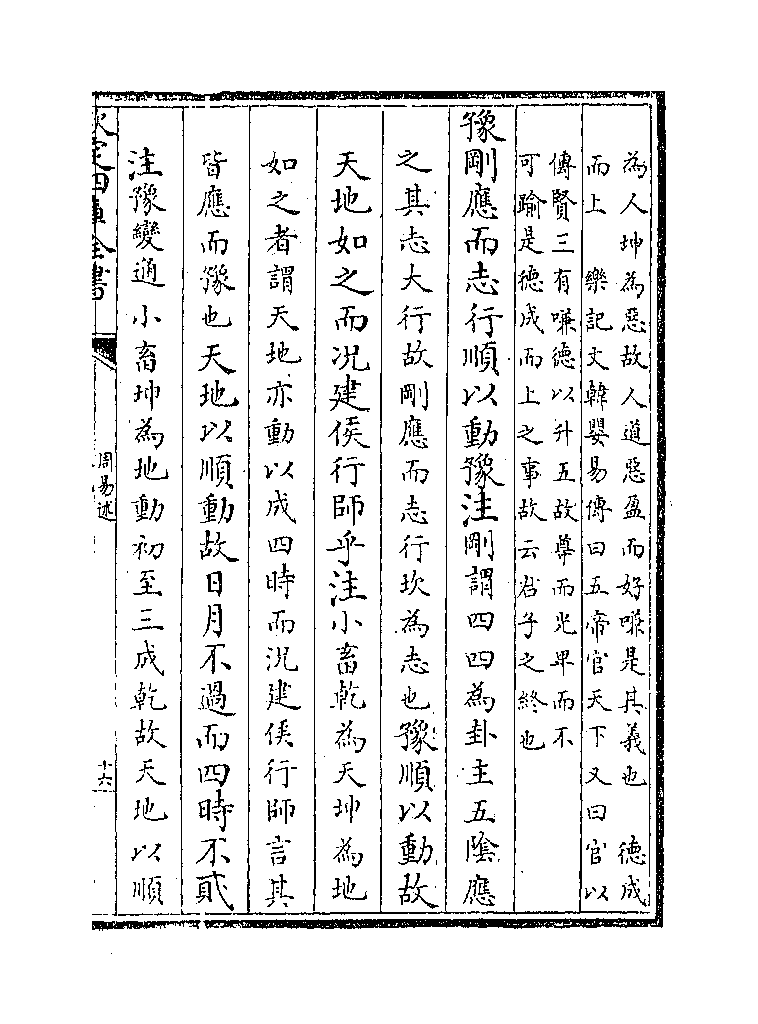 為人坤為惡故人道惡盈而好嗛是其義也　德成
而上　樂記文韓嬰易傳曰五帝官天下又曰官以
傳賢三有嗛德以升五故尊而光卑而不
可踰是德成而上之事故云君子之終也
豫剛應而志行順以動豫注剛謂四四為卦主五陰應
之其志大行故剛應而志行坎為志也豫順以動故
天地如之而況建侯行師乎注小畜乾為天坤為地
如之者謂天地亦動以成四時而況建侯行師言其
皆應而豫也天地以順動故日月不過而四時不貳
注豫變通小畜坤為地動初至三成乾故天地以順
欽定四庫全書
周易述
十六